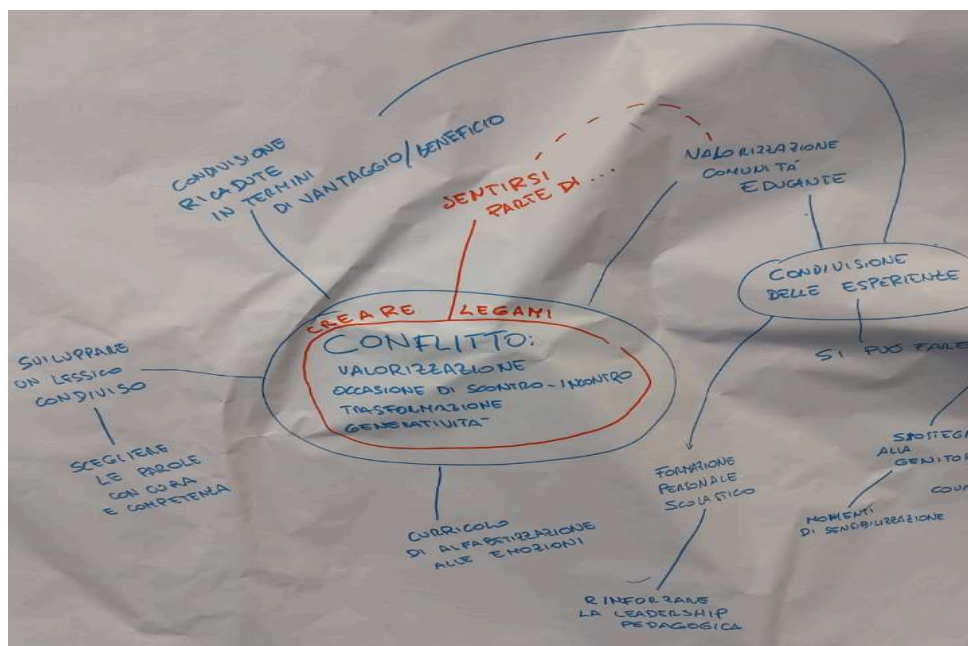 CONDIVISIONE
RICADUTE
IN TERMINI
DI VANTAGGIO/BENEFICIO
SENTIRSI
PARTE DI...
VALORIZZAZIONE
COMUNITÀ
EDUCANTE
CONDIVISIONE
DELLE ESPERIENZE
SI PUÒ FARE
CREARE LEGAMI
CONFLITTO:
VALORIZZAZIONE
OCCASIONE DI SCONTRO-INCONTRO
TRASFORMAZIONE
GENERATIVITÀ
SVILUPPARE
UN LESSICO
CONDIVISO
SCEGLIERE
LE PAROLE
CON CURA
E COMPETENZA
CURRICOLO
DI ALFABETIZZAZIONE
ALLE EMOZIONI
FORMAZIONE
PERSONALE
SCOLASTICO
RINFORZARE
LA LEADERSHIP
PEDAGOGICA
ALLA
GENITOR
MOMENTI
DI SENSIBILIZZAZIONE
COUN